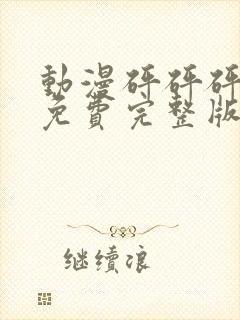 動漫砰砰砰
免費完整版
继续凉